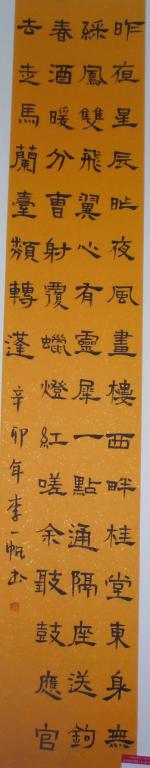 昨夜星辰昨夜風畫樓西畔桂堂東身無
綵鳳雙飛翼心有靈犀一點通隔座送鉤
春酒暖分曹射覆蠟燈紅嗟余聽鼓應官
去走馬蘭臺類轉蓬
辛卯年李一帆书